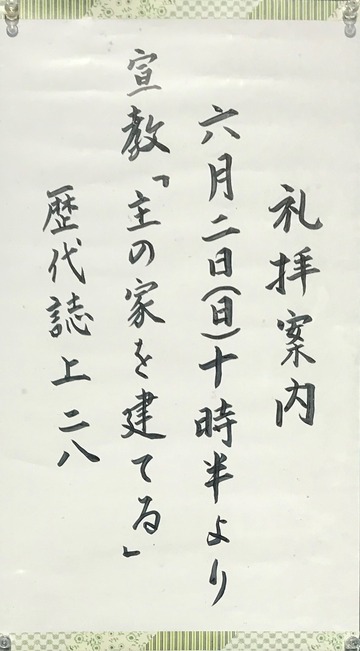 礼拝案内
六月二日(日)十時半より
宣教「主の家を建てる」
歴代誌上二八